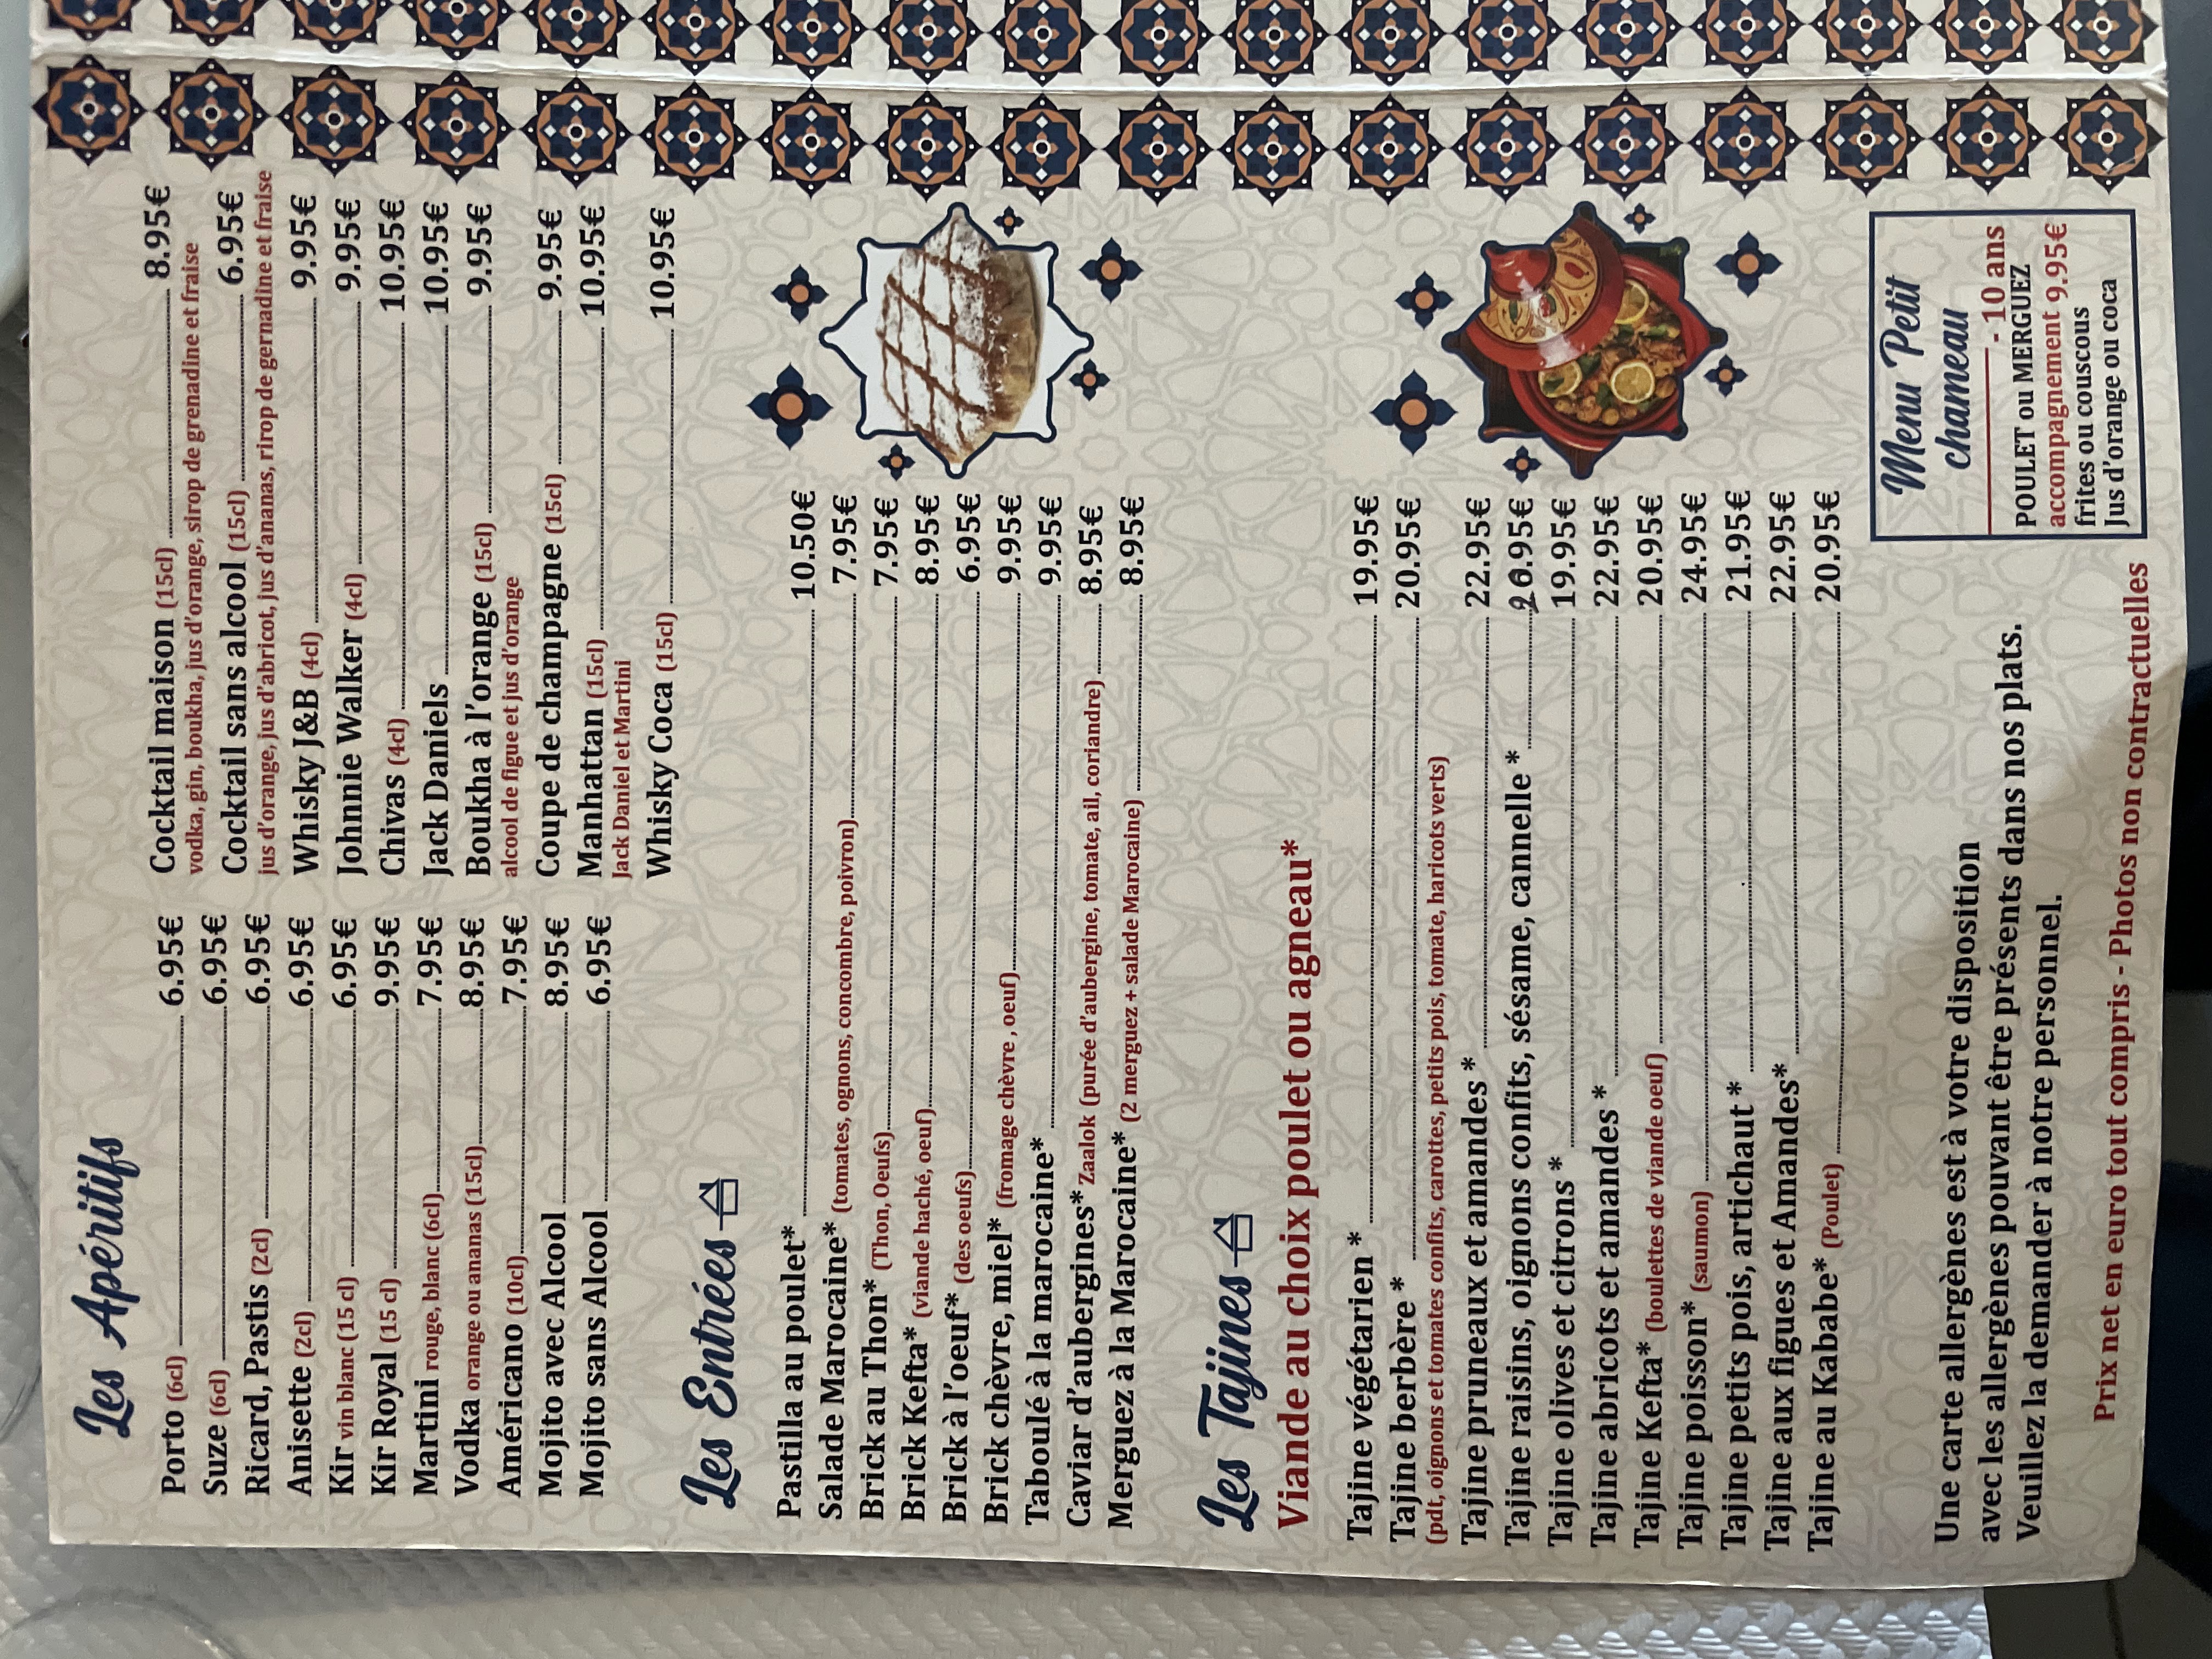 Les Apéritifs
Porto (6cl) 6.95€
Suze (6cl) 6.95€
Ricard, Pastis (2cl) 6.95€
Anisette (2cl) 6.95€
Kir vin blanc (15 cl) 6.95€
Kir Royal (15 cl) 9.95€
Martini rouge, blanc (6cl) 7.95€
Vodka orange ou ananas (15cl) 8.95€
Américano (10cl) 7.95€
Mojito avec Alcool 8.95€
Mojito sans Alcool 6.95€
Cocktail maison (15cl) 8.95€
vodka, gin, boukha, jus d'orange, sirop de grenadine et fraise
Cocktail sans alcool (15cl) 6.95€
jus d'orange, jus d'abricot, jus d'ananas, rirop de gernadine et fraise
Whisky J&B (4cl) 9.95€
Johnnie Walker (4cl) 9.95€
Chivas (4cl) 10.95€
Jack Daniels 10.95€
Boukha à l'orange (15cl) 9.95€
alcool de figue et jus d'orange
Coupe de champagne (15cl) 9.95€
Manhattan (15cl) 10.95€
Jack Daniel et Martini
Whisky Coca (15cl) 10.95€
Les Entrées
Pastilla au poulet* 10.50€
Salade Marocaine* (tomates, ognons, concombre, poivron) 7.95€
Brick au Thon* (Thon, Oeufs) 7.95€
Brick Kefta* (viande haché, oeuf) 8.95€
Brick à l'oeuf* (des oeufs) 6.95€
Brick chèvre, miel* (fromage chèvre , oeuf) 9.95€
Taboulé à la marocaine* 9.95€
Caviar d'aubergines* Zaalok (purée d'aubergine, tomate, ail, coriandre) 8.95€
Merguez à la Marocaine* (2 merguez + salade Marocaine) 8.95€
Les Tajines
Viande au choix poulet ou agneau*
Tajine végétarien * 19.95€
Tajine berbère * 20.95€
(pdt, oignons et tomates confits, carottes, petits pois, tomate, haricots verts)
Tajine pruneaux et amandes * 22.95€
Tajine raisins, oignons confits, sésame, cannelle * 20.95€
Tajine olives et citrons * 19.95€
Tajine abricots et amandes * 22.95€
Tajine Kefta* (boulettes de viande oeuf) 20.95€
Tajine poisson* (saumon) 24.95€
Tajine petits pois, artichaut * 21.95€
Tajine aux figues et Amandes* 22.95€
Tajine au Kababe* (Poulet) 20.95€
Une carte allergènes est à votre disposition
avec les allergènes pouvant être présents dans nos plats.
Veuillez la demander à notre personnel.
Menu Petit
chameau
- 10 ans
POULET ou MERGUEZ
accompagnement 9.95€
frites ou couscous
Jus d'orange ou coca
Prix net en euro tout compris - Photos non contractuelles